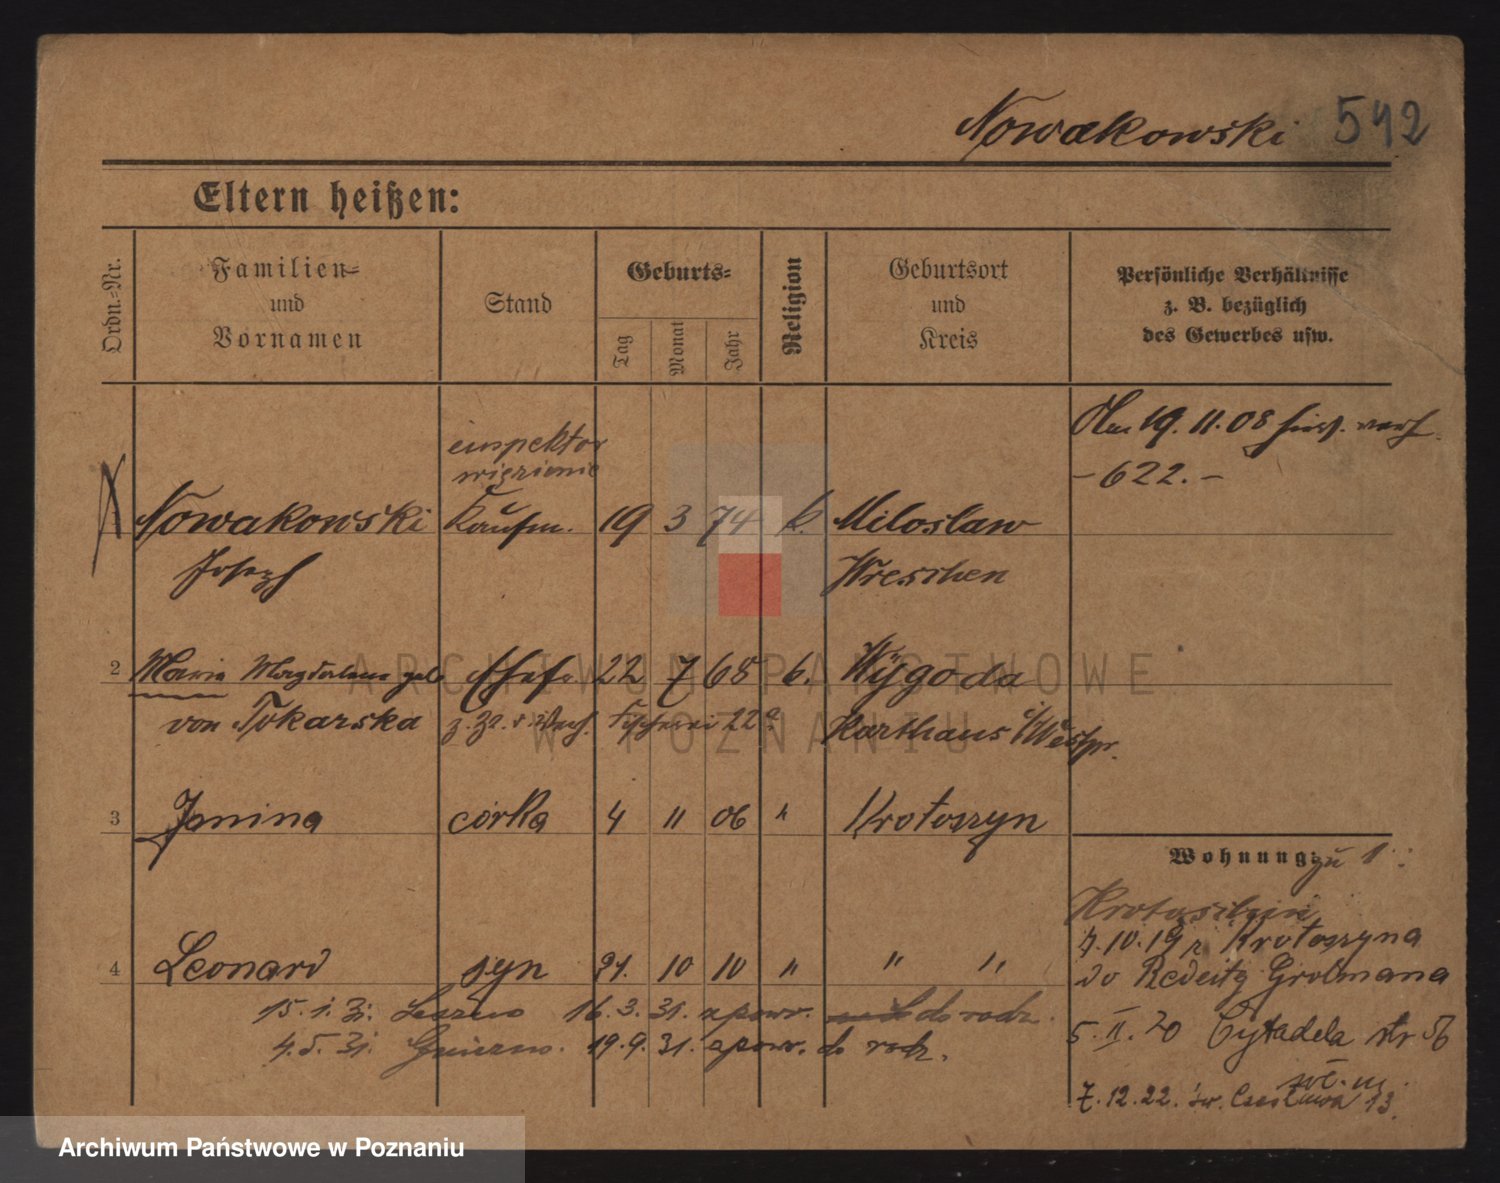 Nowakowski 542
Eltern heißen:
Ordn.-Nr.
Familien- und Vornamen
Stand
Geburts-
Tag
Monat
Jahr
Religion
Geburtsort und Kreis
Persönliche Verhältnisse
z. B. bezüglich
des Gewerbes usw.
19. 11. 08
-622.-
inspektor
więzienie
Nowakowski Kaufm. 19 3 74 k. Miloslaw
Joseph Wreschen
2 Maria Magdalena geb. Ehefr. 22 7 68 k. Wygoda
von Tokarska Karthaus Westpr.
3 Janina córka 4 11 06 " Krotoszyn
4 Leonard syn 21. 10 10 " " "
15. 1. 31. Leszno 16. 3. 31. z pow. do rodz.
4. 5. 31. Gniezno. 19. 9. 31. z pow. do rodz.
Wohnung zu 1:
Krotoschin
4. 10. 19 z Krotoszyna
do Grolmana
5. II. 20 Cytadela
7. 12. 22. św. Czesława 13.
ARCHIWUM PAŃSTWOWE
W POZNANIU
Archiwum Państwowe w Poznaniu